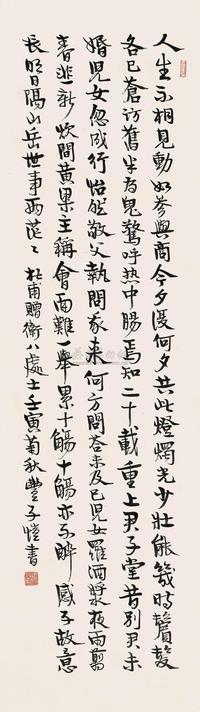 人生不相見動如參與商今夕復何夕共此燈燭光少壯能幾時鬢髮
各已蒼訪舊半為鬼驚呼熱中腸焉知二十載重上君子堂昔別君未
婚兒女忽成行怡然敬父執問我來何方問答未及已兒女羅酒漿夜雨翦
春韭新炊間黃粱主稱會面難一舉累十觴十觴亦不醉感子故意
長明日隔山岳世事兩茫〻 杜甫贈衛八處士壬寅菊秋豐子愷書